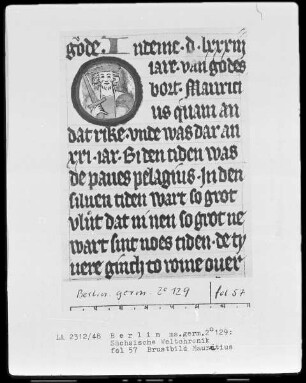 gode. In deme .d. lxxxiii
iare. van godes
bort. Mauricius
us quam an
dat rike. vnde was dar an
xxi. iar. Bi den tiden was
de paues pelagius. In den
siluen tiden wart so grot
vlůt dat ni nen so grot ne
wart sint noes tiden. de ty
uere ginch to rome ouer
Berlin. germ. 2° 129
fol 57
LA 2312/48 Berlin ms.germ.2°129:
Sächsische Weltchronik
fol 57 Brustbild Mauritius